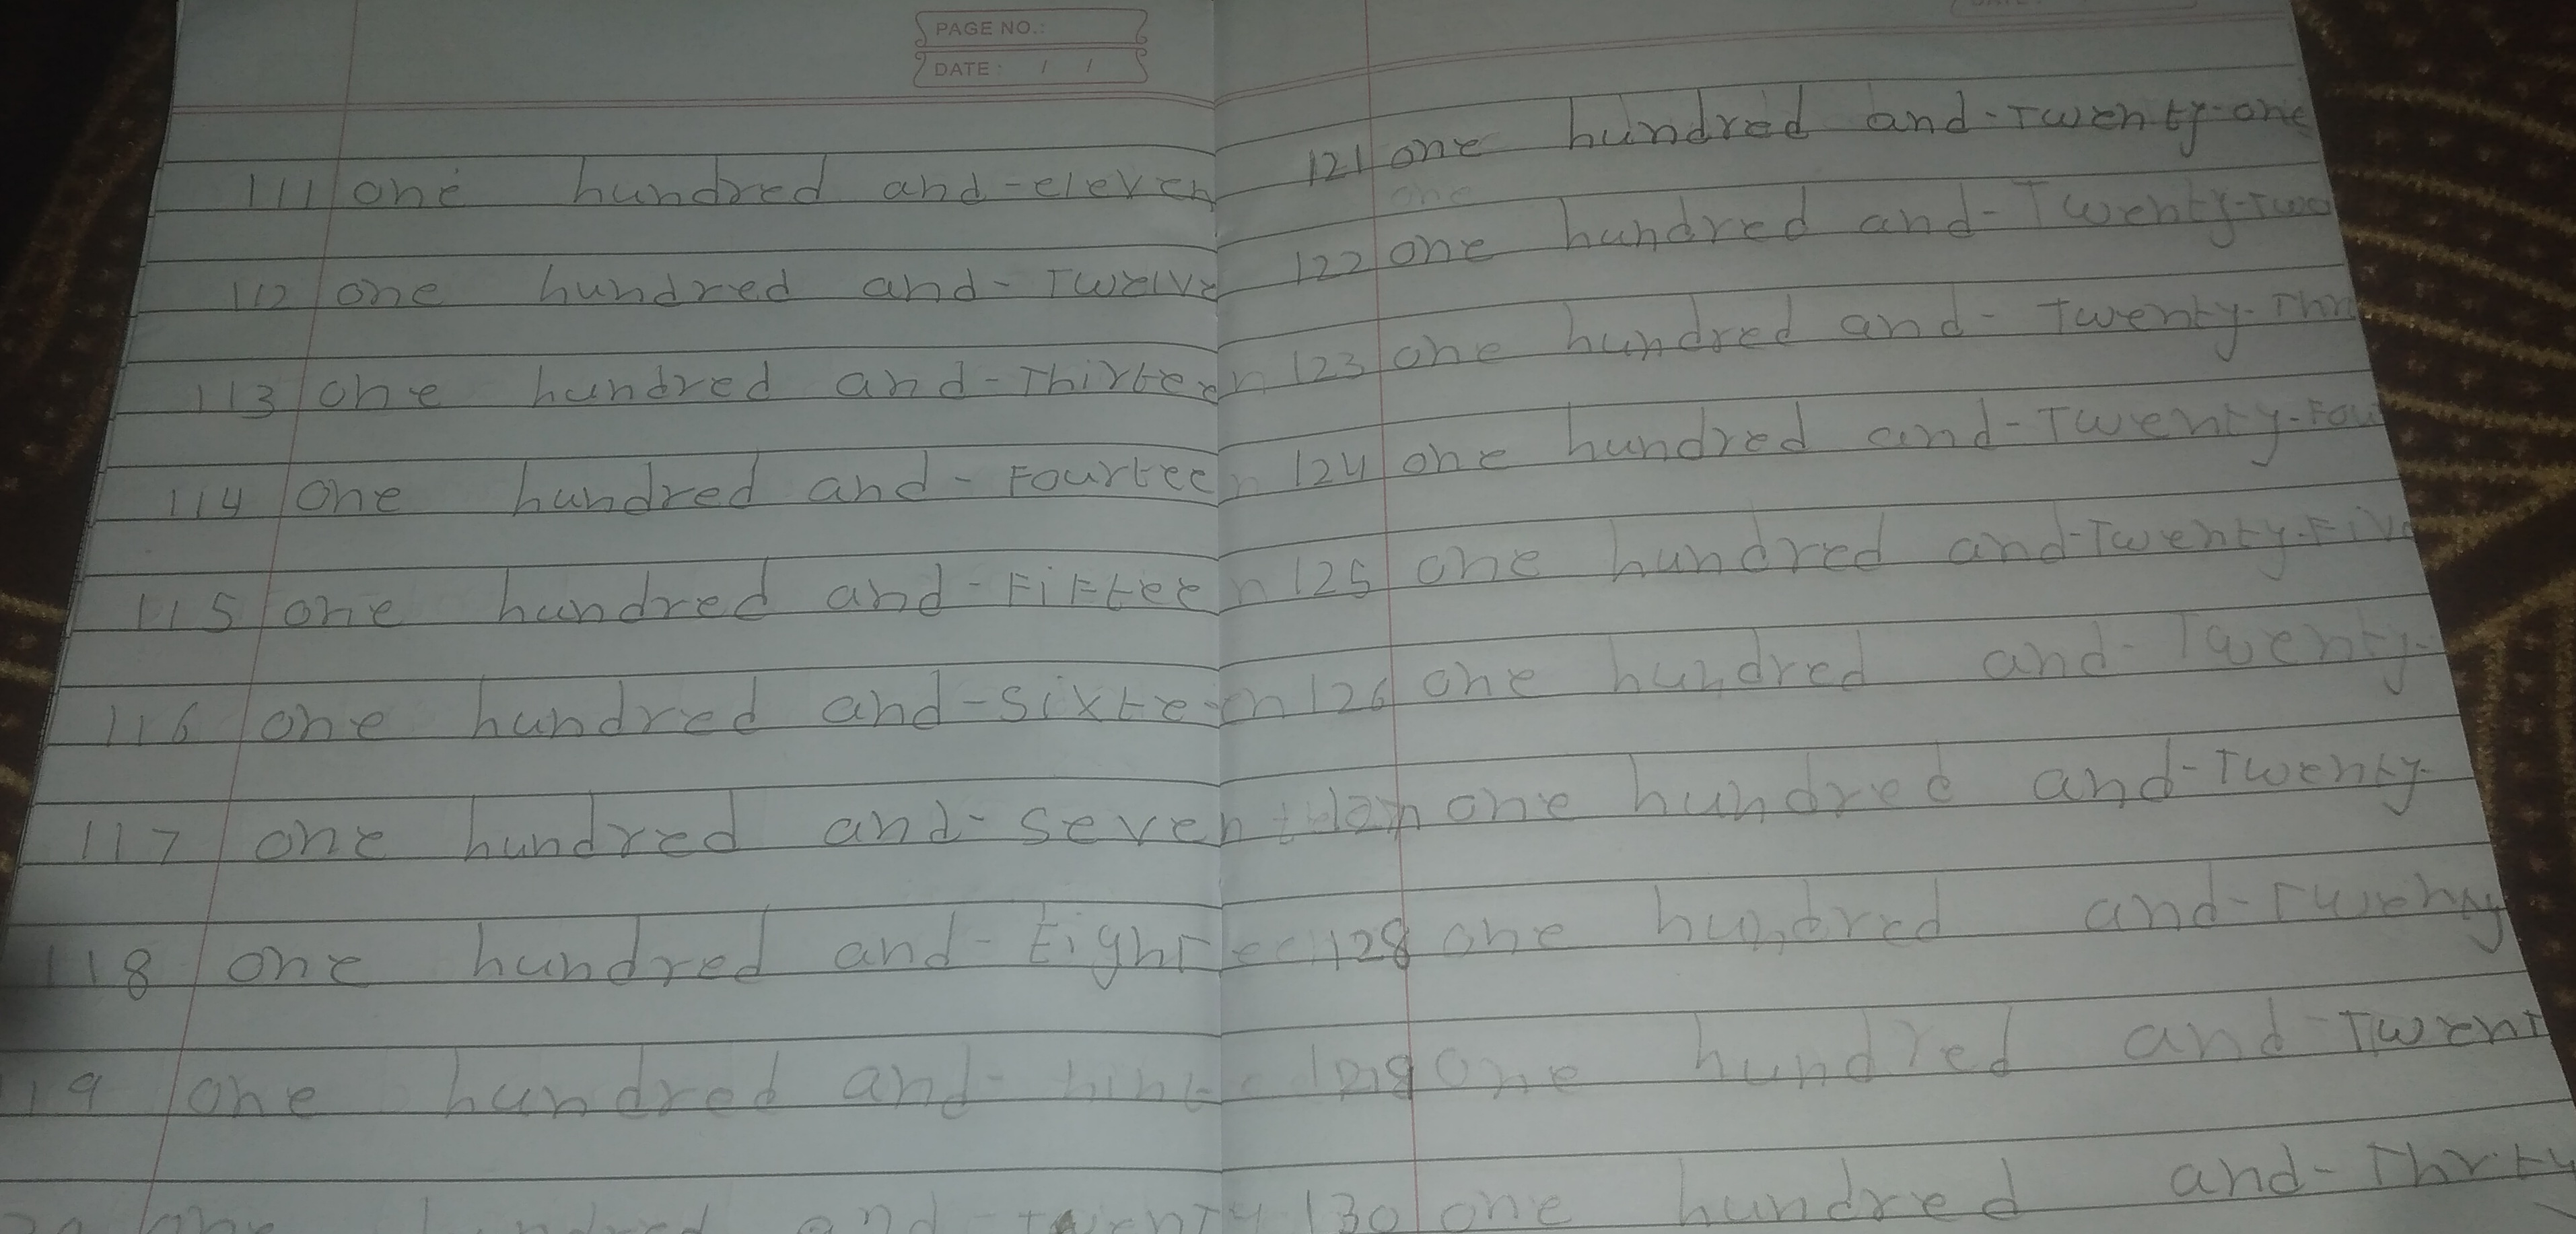 PAGE NO.:
DATE: / /
111 one hundred and-eleven
112 one hundred and-Twelve
113 one hundred and-Thirteen
114 one hundred and-Fourteen
115 one hundred and-FiFteen
116 one hundred and-sixteen
117 one hundred and-seventeen
118 one hundred and-Eight
119 one hundred and-
one hundred and-twenty
121 one hundred and-Twenty-one
one
122 one hundred and-Twenty-Two
123 one hundred and-Twenty-Thr
124 one hundred and-Twenty-Four
125 one hundred and-Twenty-Five
126 one hundred and-Twenty-
one hundred and-Twenty-
128 one hundred and-Twenty
129 one hundred and-Twent
130 one hundred and-Thrity